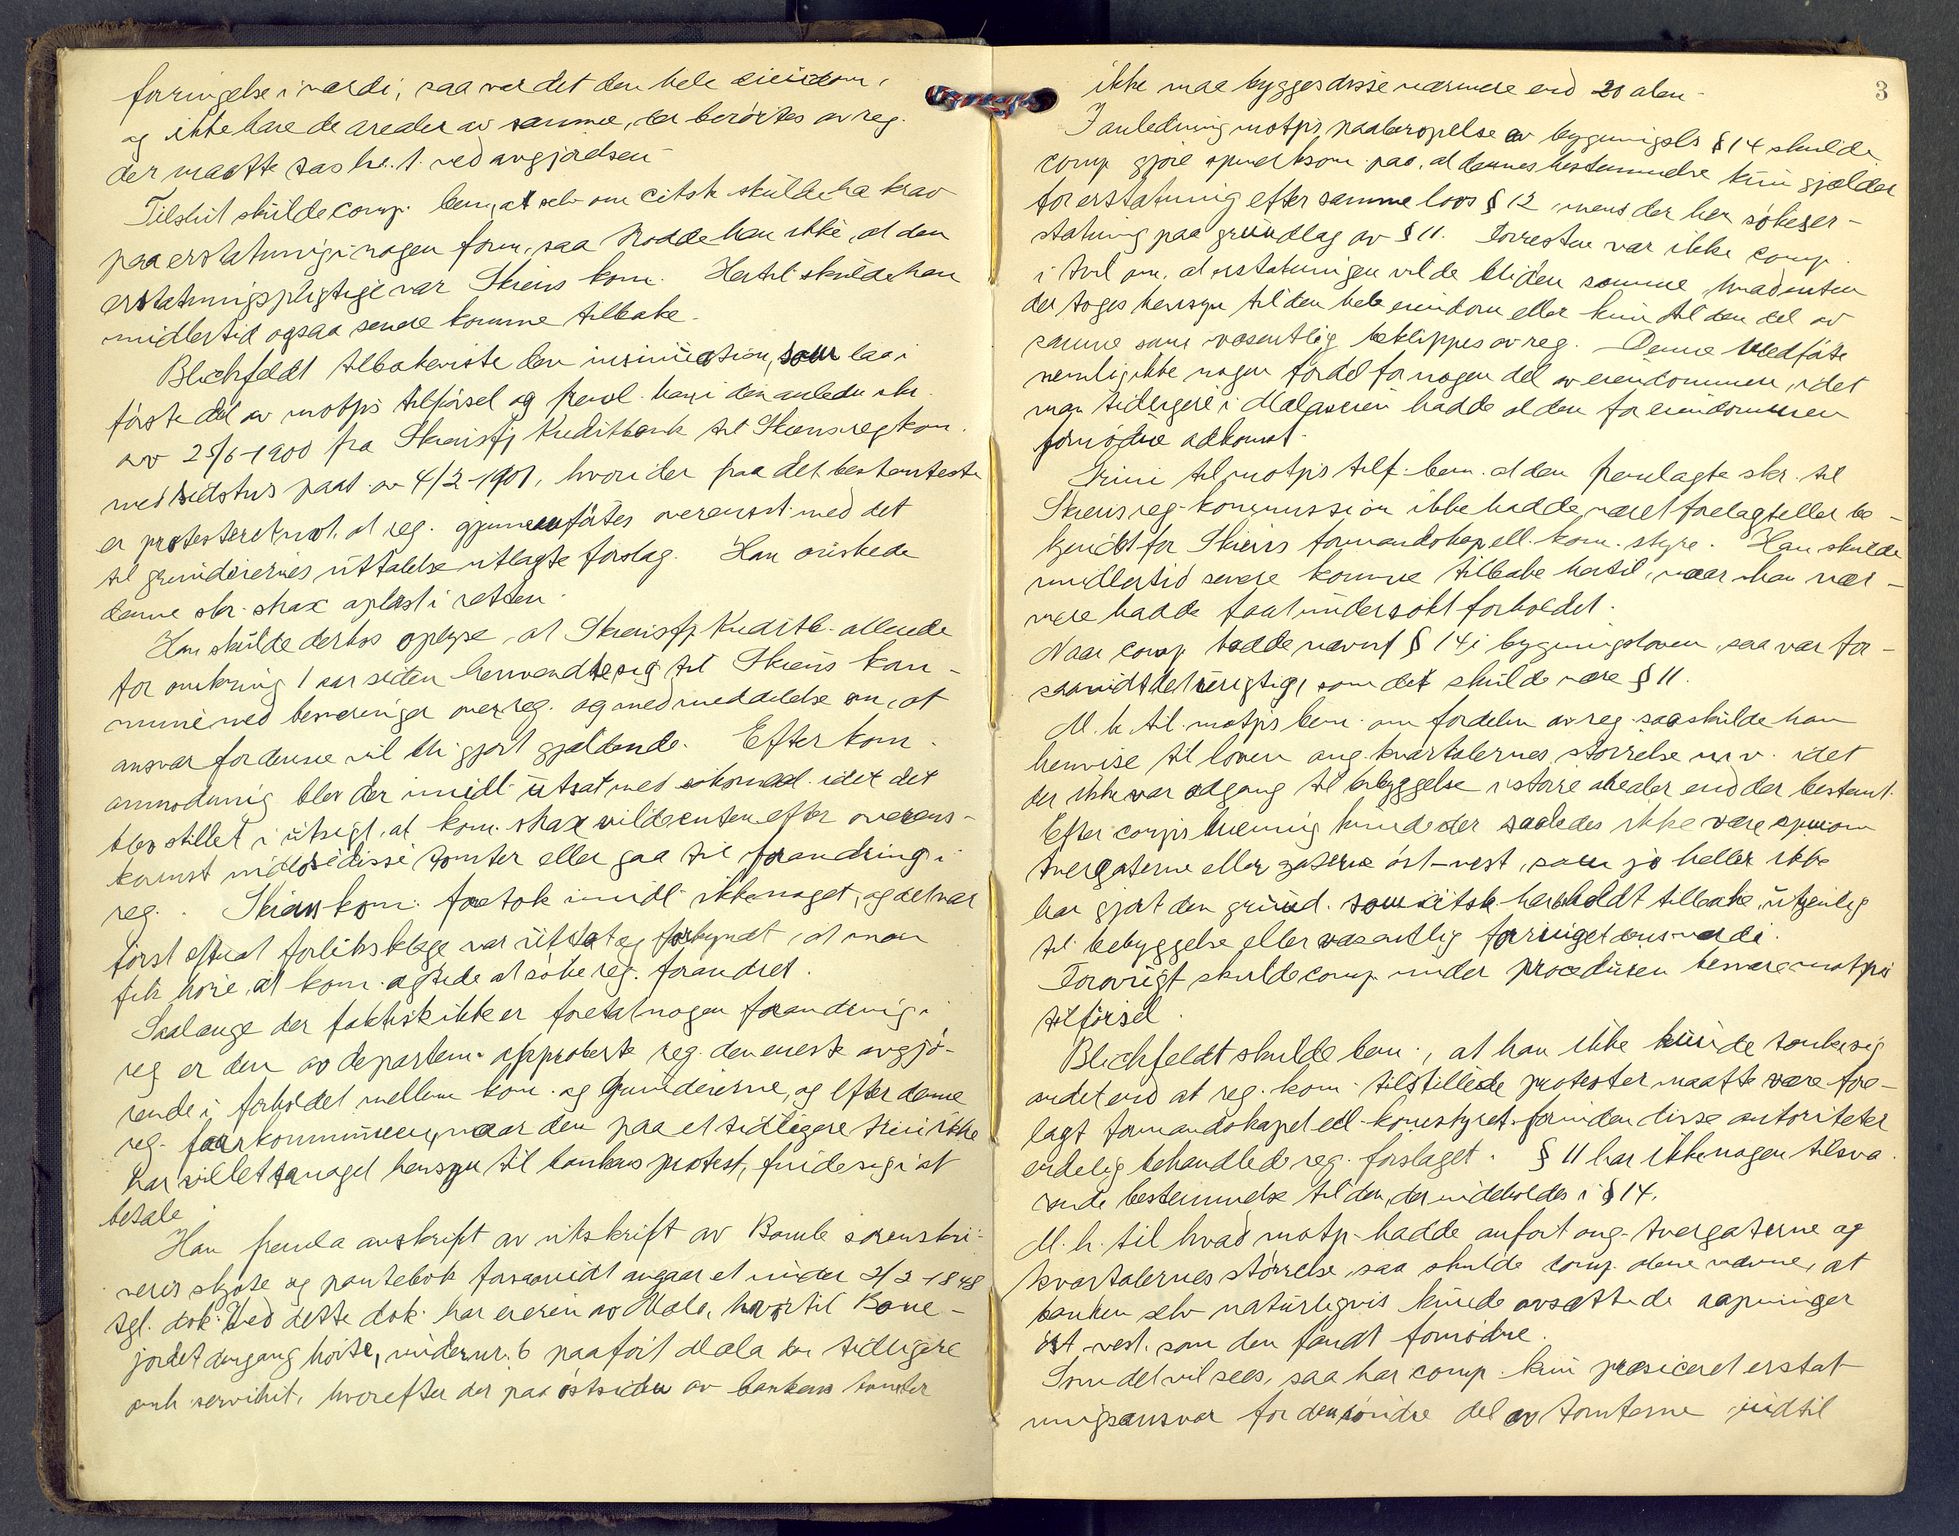 forringelse i værdi, saa var det den hele eiendom,
og ikke bare de arealer av samme, der berörtes av reg.
der maatte tas he. t. ved avgjørelsen
Tilslut skulde comp. bem, at selv om citsk skulde ha krav
paa erstatning i nogen form, saa trodde han ikke, at den
erstatningspligtige var Skiens kom. Hertil skulde han
midlertid ogsaa senere komme tilbake.
Blichfeldt tilbakeviste den insinuation, som laa i
förste del av motp's tilförsel og freml. han i den anledn skr.
av 25/6-1900 fra Skiensfj Kreditbank til Skiens reg kom.
med paat. av 4/2-1901, hvori der paa det bestemteste
er protesteret mot, at reg. gjennemförtes overenst. med det
til grundeiernes uttalelse utlagte forslag. Han önskede
denne skr. strax oplæst i retten.
Han skulde derhos oplyse, at Skiensfj. Kreditb. allerede
for omkring 1 aar siden henvendte sig til Skiens kom-
mune med besværinger over reg. og med meddelelse om, at
ansvar for denne vil bli gjort gjældende. Efter kom.
anmodning blev der imidl. utsat med söksmaal idet det
blev stillet i utsigt, at kom. strax vilde enten efter overens-
komst indlöse disse tomter eller gaa til forandring i
reg. Skiens kom. foretok imidl. ikke noget, og det var
först efter at forliksklage var uttat og forkyndt, at man
fik höre, at kom. agtede at söke reg. forandret.
Saalænge der faktisk ikke er foretat nogen forandring i
reg er den av departem. approberte reg. den eneste avgjö-
rende i forholdet mellem kom. og Grundeierne, og efter denne
reg. faar kommunen, naar den paa et tidligere trin ikke
har villet ta noget hensyn til bankens protest, finde sig i at
betale.
Han fremla avskrift av utskrift av Bamle sorenskri-
vers skjöte og pantebok forsaavidt angaar et under 2/2-1848
tgl. dok. Ved dette dok. har eieren av Mæla, hvortil Bøne-
jordet dengang hörte, under nr. 6 paafört Mæla den tidligere
omh servitut, hvorefter der paa östsiden av bankens tomter
3
ikke maa bygges disse nærmere end 20 alen.
I anledning motp's paaberopelse av bygningsl's § 14 skulde
comp gjöre opmerksom paa, at dennes bestemmelse kun gjælder
for erstatning efter samme lovs § 12 mens der her sökes er-
statning paa grundlag av § 11. Forresten var ikke comp.
i tvil om, at erstatningen vilde bli den samme, hvad enten
der toges hensyn til den hele eiendom eller kun til den del av
samme som væsentlig beklippes av reg. Denne medförte
nemlig ikke nogen fördel for nogen del av eiendommen, idet
man tidligere i Mælagaten hadde al den for eiendommen
fornödne adkomst.
Friis til motp's tilf. bem. at den fremlagte skr. til
Skiens reg-kommission ikke hadde været forelagt eller be-
kjendt for Skiens formandskap ell. kom. styre. Han skulde
midlertid senere komme tilbake hertil, naar han nær-
mere hadde faat undersökt forholdet.
Naar comp hadde nævnt § 14 i bygningsloven, saa var for-
saavidt det urigtig, som det skulde være § 11.
M. h. til motp's bem. om fordelen av reg. saa skulde han
henvise til loven ang. kvartalernes störrelse m.v. idet
der ikke var adgang til bebyggelse i störe arealer end der bestemt.
Efter comp's mening kunde der saaledes ikke være spm om
tvergaterne eller gaterne öst-vest, som jo heller ikke
har gjort den grund. som citsk. har holdt tilbake, utjenlig
til bebyggelse eller væsentlig forringet dens værdi.
Forövrigt skulde comp. under proceduren besvare motp's
tilförsel.
Blichfeldt skulde bem., at han ikke kunde tænke sig
andet end at reg. kom. tilstillede protester maatte være fore-
lagt formandskapet ell. komstyret. forinden disse autoriteter
endelig behandlede reg. forslaget. § 11 har ikke nogen tilsva-
rende bestemmelse til den, der indeholdes i § 14.
M. h. til hvad motp. hadde anfört ang. tvergaterne og
kvartalernes störrelse, saa skulde comp. alene nævne, at
banken selv naturligvis kunde avsætte de aapninger
öst-vest. som den fandt fornödne.
Som det vil sees, saa har comp. kun præciceret erstat-
ningsansvar for den söndre del av tomterne indtil